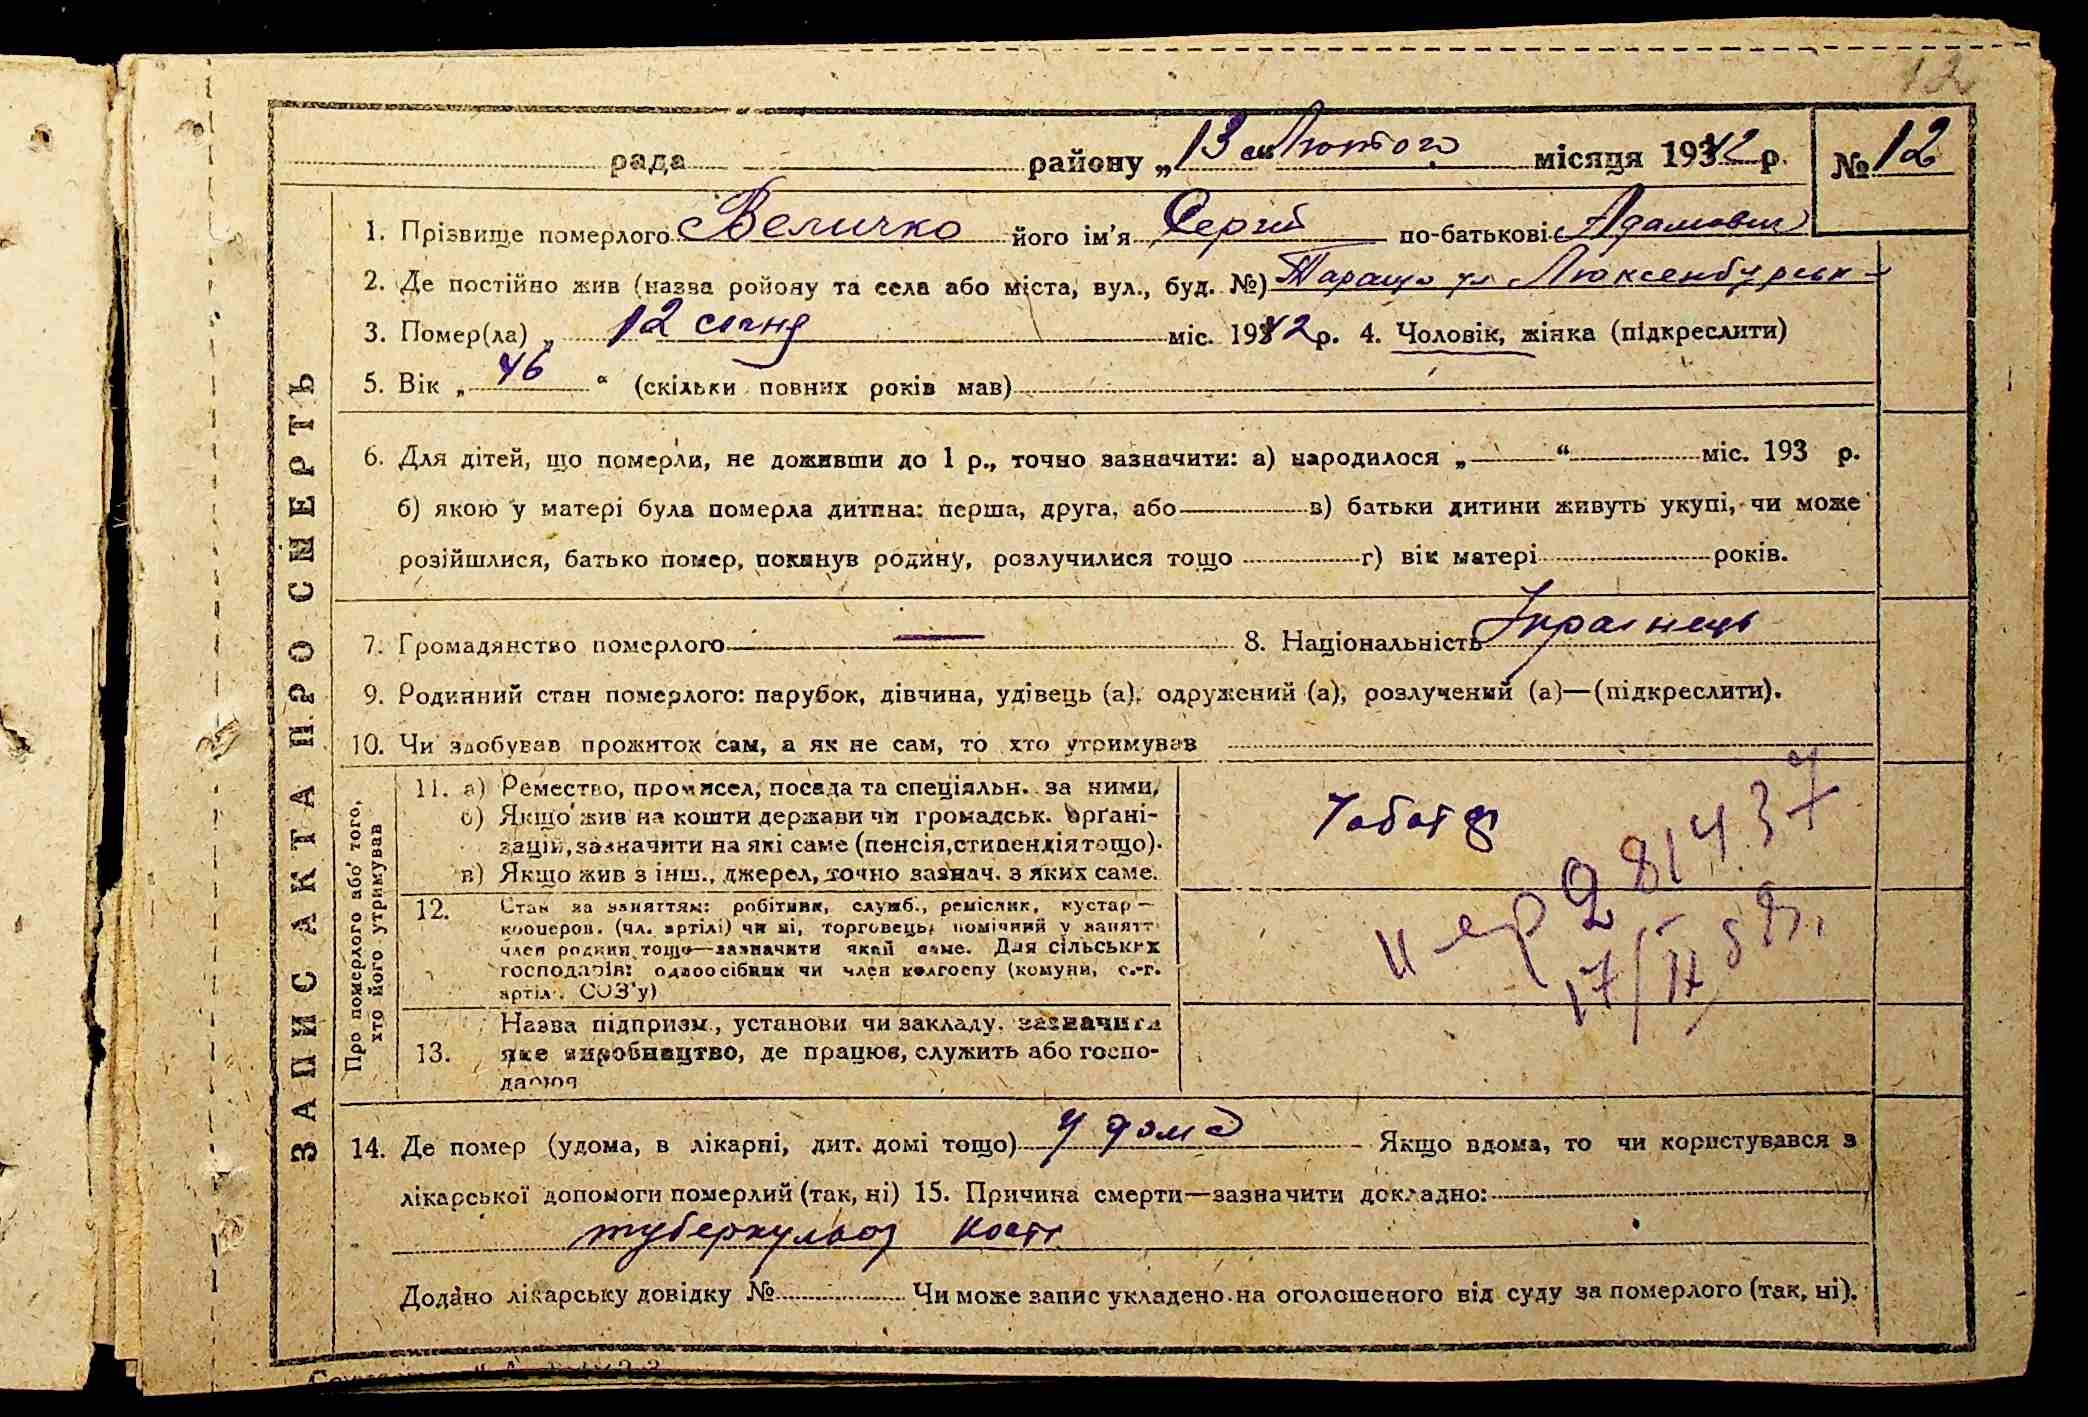 12
рада района „13" Лютого місяця 1942 р. № 12
ЗАПИС АКТА ПРО СМЕРТЬ
1. Прізвище померлого Величко його ім'я Сергій по-батькові Адамович
2. Де постійно жив (назва ройону та села або міста, вул., буд. №) Тараща ул Люксенбурськ
3. Помер(ла) „ 12 січня міс. 1942 р. 4. Чоловік, жінка (підкреслити)
5. Вік „ 46 “ (скільки повних років мав)
6. Для дітей, що померли, не доживши до 1 р., точно зазначити: а) народилося „ “ міс. 193 р.
б) якою у матері була померла дитина: перша, друга, або в) батьки дитини живуть укупі, чи може
розійшлися, батько помер, покинув родину, розлучилися тощо г) вік матері років.
7. Громадянство померлого — 8. Національність Українець
9. Родинний стан померлого: парубок, дівчина, удівець (а), одружений (а), розлучений (а)—(підкреслити).
10. Чи здобував прожиток сам, а як не сам, то хто утримував
Про померлого або того,
хто його утримував
11. а) Ремество, промисел, посада та спеціяльн. за ними,
б) Якщо жив на кошти держави чи громадськ. органі-
зацій, зазначити на які саме (пенсія, стипендія тощо).
в) Якщо жив з інш., джерел, точно зазнач. з яких саме.
12. Стан за заняттям: робітник, служб., ремісник, кустар —
кооперов. (чл. артілі) чи ні, торговець, помічний у занятт
член родини тощо—зазначити який саме. Для сільських
господарів: одноосібник чи член колгоспу (комуни, с.-г.
артілі, СОЗ'у)
13. Назва підпризм., установи чи закладу, зазначити
яке виробництво, де працює, служить або госпо-
дарює
281437
17/II 59г.
14. Де помер (удома, в лікарні, дит. домі тощо) у дома Якщо вдома, то чи користувався з
лікарської допомоги померлий (так, ні) 15. Причина смерти—зазначити докладно:
туберкульоз кості
Додано лікарську довідку № Чи може запис укладено на оголошеного від суду за померлого (так, ні).